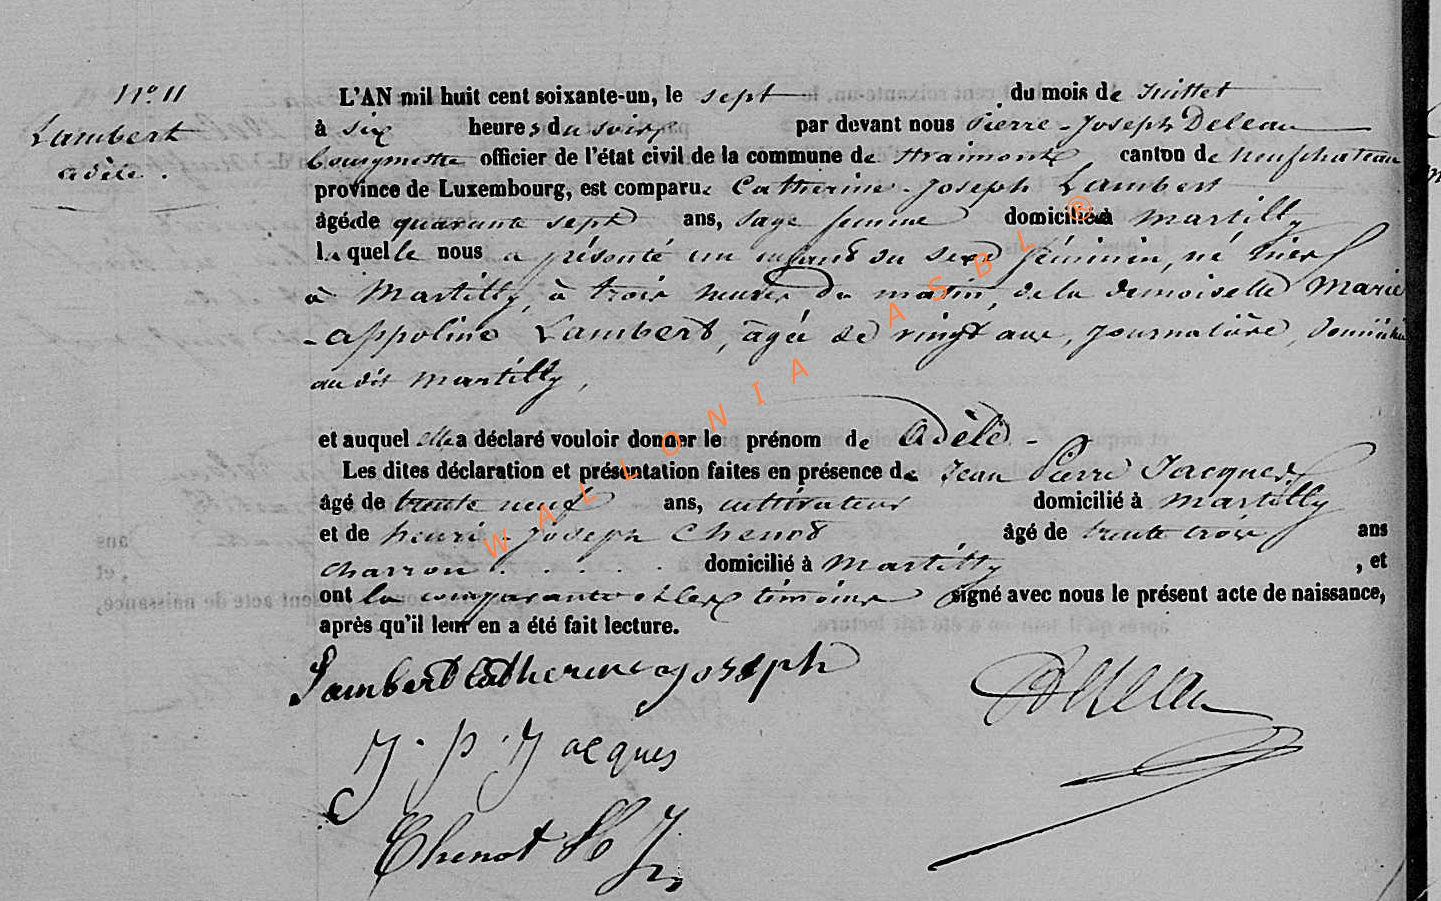 N° 11
Lambert
adèle.
L'AN mil huit cent soixante-un, le sept du mois de Juillet
à six heures du soir par devant nous Pierre-Joseph Deleau
bourgmestre officier de l'état civil de la commune de Straimont, canton de neufchateau
province de Luxembourg, est comparue Catherine-Joseph Lambert
âgée de quarante sept ans, sage femme domiciliée à Martilly
laquelle nous a présenté un enfant du sexe féminin, né hier
à Martilly, à trois heures du matin, de la demoiselle Marie
-appoline Lambert, âgée de vingt ans, journalière, domiciliée
au dit Martilly,
et auquel elle a déclaré vouloir donner le prénom de Adèle -
Les dites déclaration et présentation faites en présence de Jean Pierre Jacques
âgé de trente neuf ans, cultivateur domicilié à Martilly
et de henri-joseph Chenot, âgé de trente trois ans
charron . . . . . domicilié à Martilly, et
ont la comparante et les témoins signé avec nous le présent acte de naissance,
après qu'il leur en a été fait lecture.
Lambert Catherine joseph
Deleau
J. p. Jacques
Chenot H J
WALLONIA ASBL ®